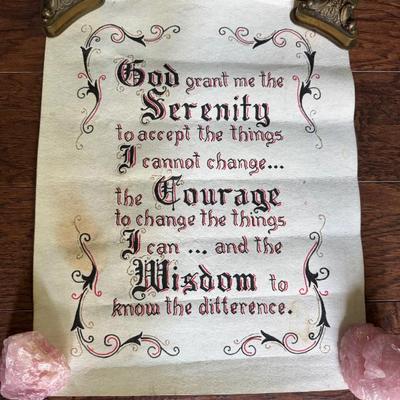 God grant me the
Serenity
to accept the things
I cannot change...
the Courage
to change the things
I can ... and the
Wisdom to
know the difference.